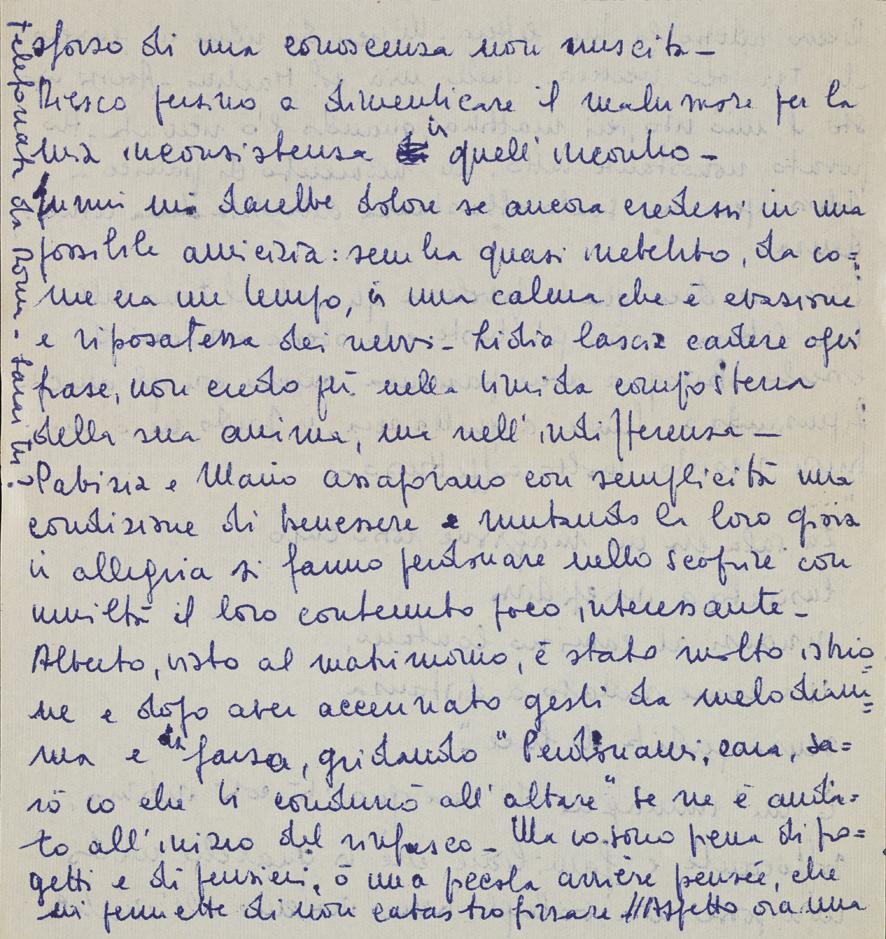 sforzo di una conoscenza non riuscita –
Riesco persino a dimenticare il malumore per la
mia inconsistenza in quell'incontro –
mi darebbe dolore se ancora credessi in una
possibile amicizia: sembra quasi inebetito, da co=
me era un tempo, in una calma che è evasione
e riposatezza dei nervi – Lidia lascia cadere ogni
frase, non credo più nella timida compostezza
della sua anima, ma nell'indifferenza –
e Mario assaporano con semplicità una
condizione di benessere e mutando la loro gioia
in allegria si fanno perdonare nello scoprire con
umiltà il loro contenuto poco interessante –
Alberto, visto al matrimonio, è stato molto istrio
ne e dopo aver accennato gesti da melodram=
ma e da farsa, gridando "Perdonami, cara, sa=
rò io che ti condurrò all'altare" se ne è anda=
to all'inizio del rinfresco – Ma io sono piena di pro=
getti e di pensieri, ò una piccola arrière pensée, che
mi permette di non catastrofizzare // Aspetto ora una
telefonata da Roma – sarai tu?